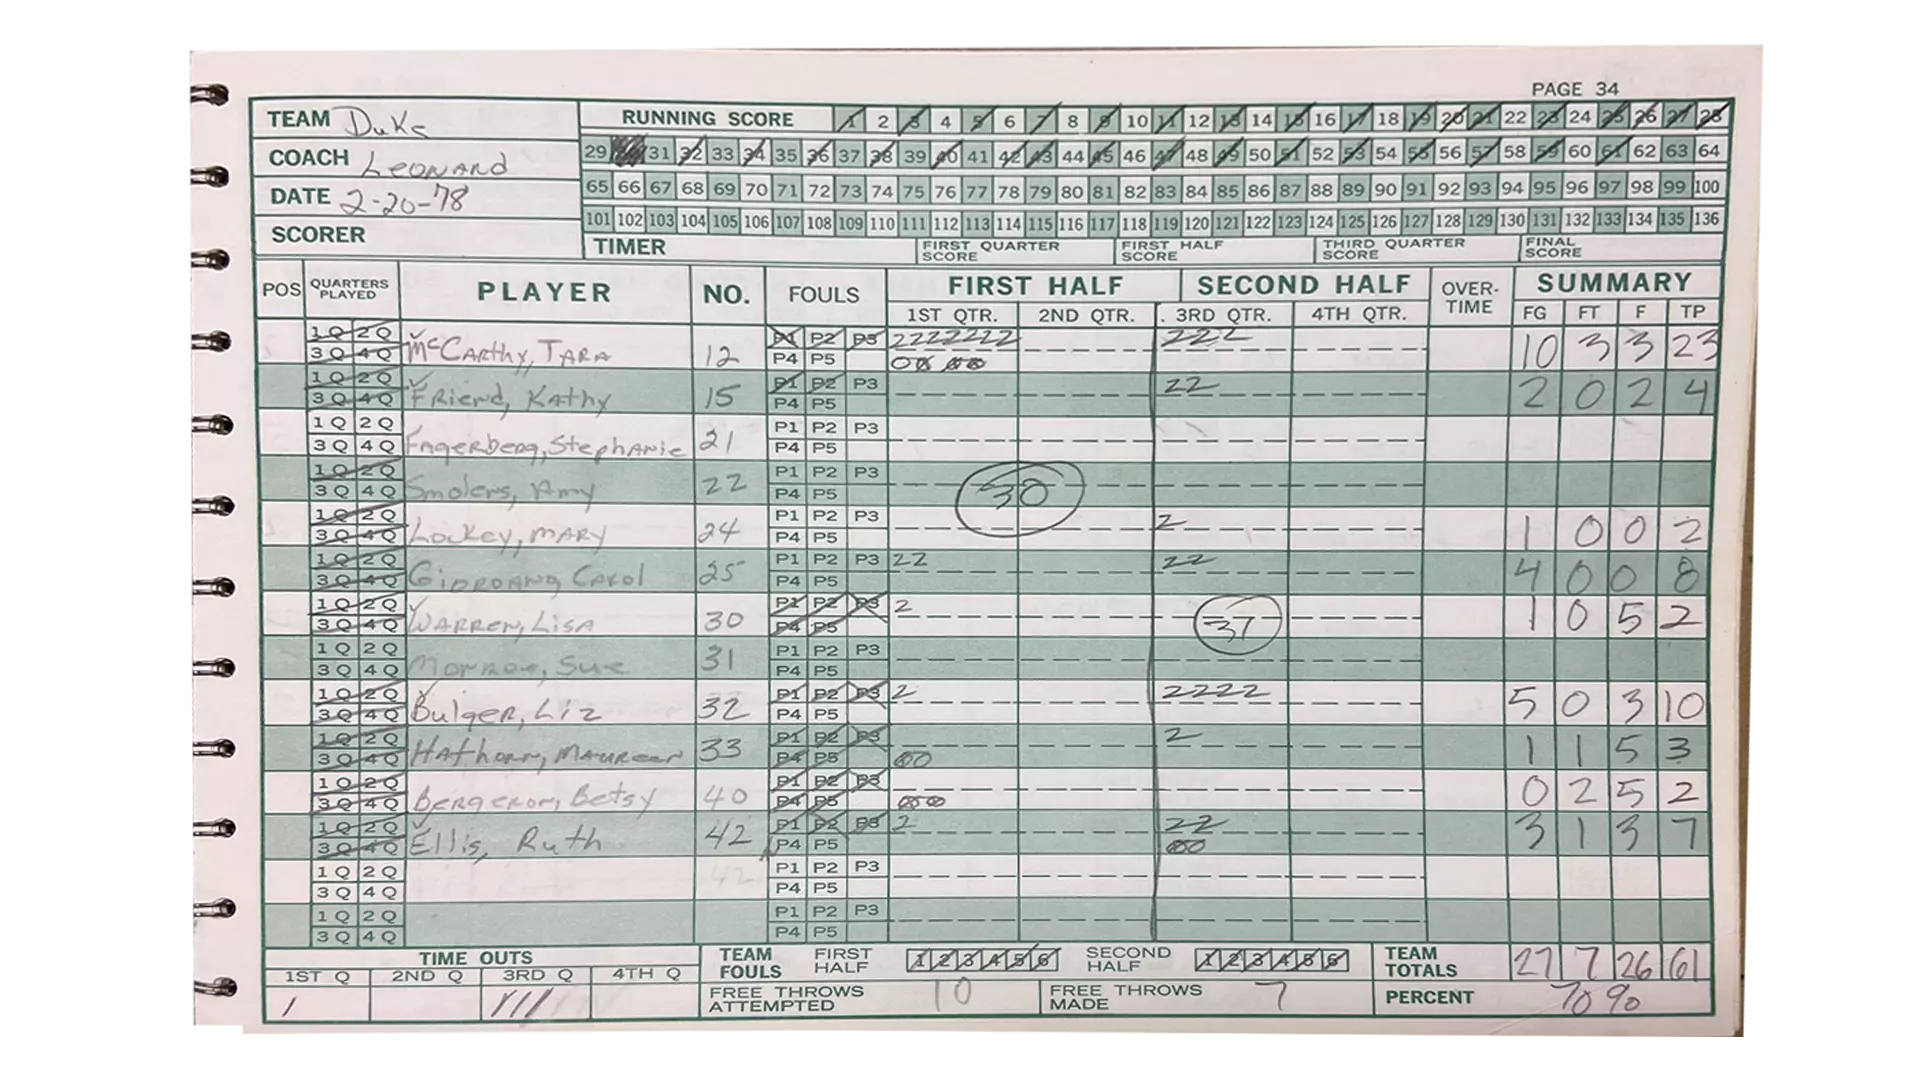 PAGE 34
TEAM Duke
COACH Leonard
DATE 2-20-78
SCORER
RUNNING SCORE 1 2 3 4 5 6 7 8 9 10 11 12 13 14 15 16 17 18 19 20 21 22 23 24 25 26 27 28
29 31 32 33 34 35 36 37 38 39 40 41 42 43 44 45 46 47 48 49 50 51 52 53 54 55 56 57 58 59 60 61 62 63 64
65 66 67 68 69 70 71 72 73 74 75 76 77 78 79 80 81 82 83 84 85 86 87 88 89 90 91 92 93 94 95 96 97 98 99 100
101 102 103 104 105 106 107 108 109 110 111 112 113 114 115 116 117 118 119 120 121 122 123 124 125 126 127 128 129 130 131 132 133 134 135 136
TIMER FIRST QUARTER SCORE FIRST HALF SCORE THIRD QUARTER SCORE FINAL SCORE
POS QUARTERS PLAYED PLAYER NO. FOULS FIRST HALF SECOND HALF OVER-TIME SUMMARY
1ST QTR. 2ND QTR. 3RD QTR. 4TH QTR. FG FT F TP
1 Q 2 Q P1 P2 P3 2222222 222
3 Q 4 Q McCarthy, Tara 12 P4 P5 10 3 3 23
1 Q 2 Q P1 P2 P3 22
3 Q 4 Q Friend, Kathy 15 P4 P5 2 0 2 4
1 Q 2 Q P1 P2 P3
3 Q 4 Q Fagerberg, Stephanie 21 P4 P5
1 Q 2 Q P1 P2 P3
3 Q 4 Q Smolens, Amy 22 P4 P5 30
1 Q 2 Q P1 P2 P3 2
3 Q 4 Q Lockey, Mary 24 P4 P5 1 0 0 2
1 Q 2 Q P1 P2 P3 22 22
3 Q 4 Q Carol 25 P4 P5 4 0 0 8
1 Q 2 Q P1 P2 P3 2
3 Q 4 Q Warren, Lisa 30 P4 P5 37 1 0 5 2
1 Q 2 Q P1 P2 P3
3 Q 4 Q Monroe, Sue 31 P4 P5
1 Q 2 Q P1 P2 P3 2 2222
3 Q 4 Q Bulger, Liz 32 P4 P5 5 0 3 10
1 Q 2 Q P1 P2 P3 2
3 Q 4 Q Hathorn, Maureen 33 P4 P5 1 1 5 3
1 Q 2 Q P1 P2 P3
3 Q 4 Q Bergeron, Betsy 40 P4 P5 0 2 5 2
1 Q 2 Q P1 P2 P3 2 22
3 Q 4 Q Ellis, Ruth 42 P4 P5 3 1 3 7
1 Q 2 Q P1 P2 P3
3 Q 4 Q P4 P5
1 Q 2 Q P1 P2 P3
3 Q 4 Q P4 P5
TIME OUTS
1ST Q 2ND Q 3RD Q 4TH Q
TEAM FOULS FIRST HALF 1 2 3 4 5 6 SECOND HALF 1 2 3 4 5 6 TEAM TOTALS 27 7 26 61
FREE THROWS ATTEMPTED 10 FREE THROWS MADE 7 PERCENT 70%